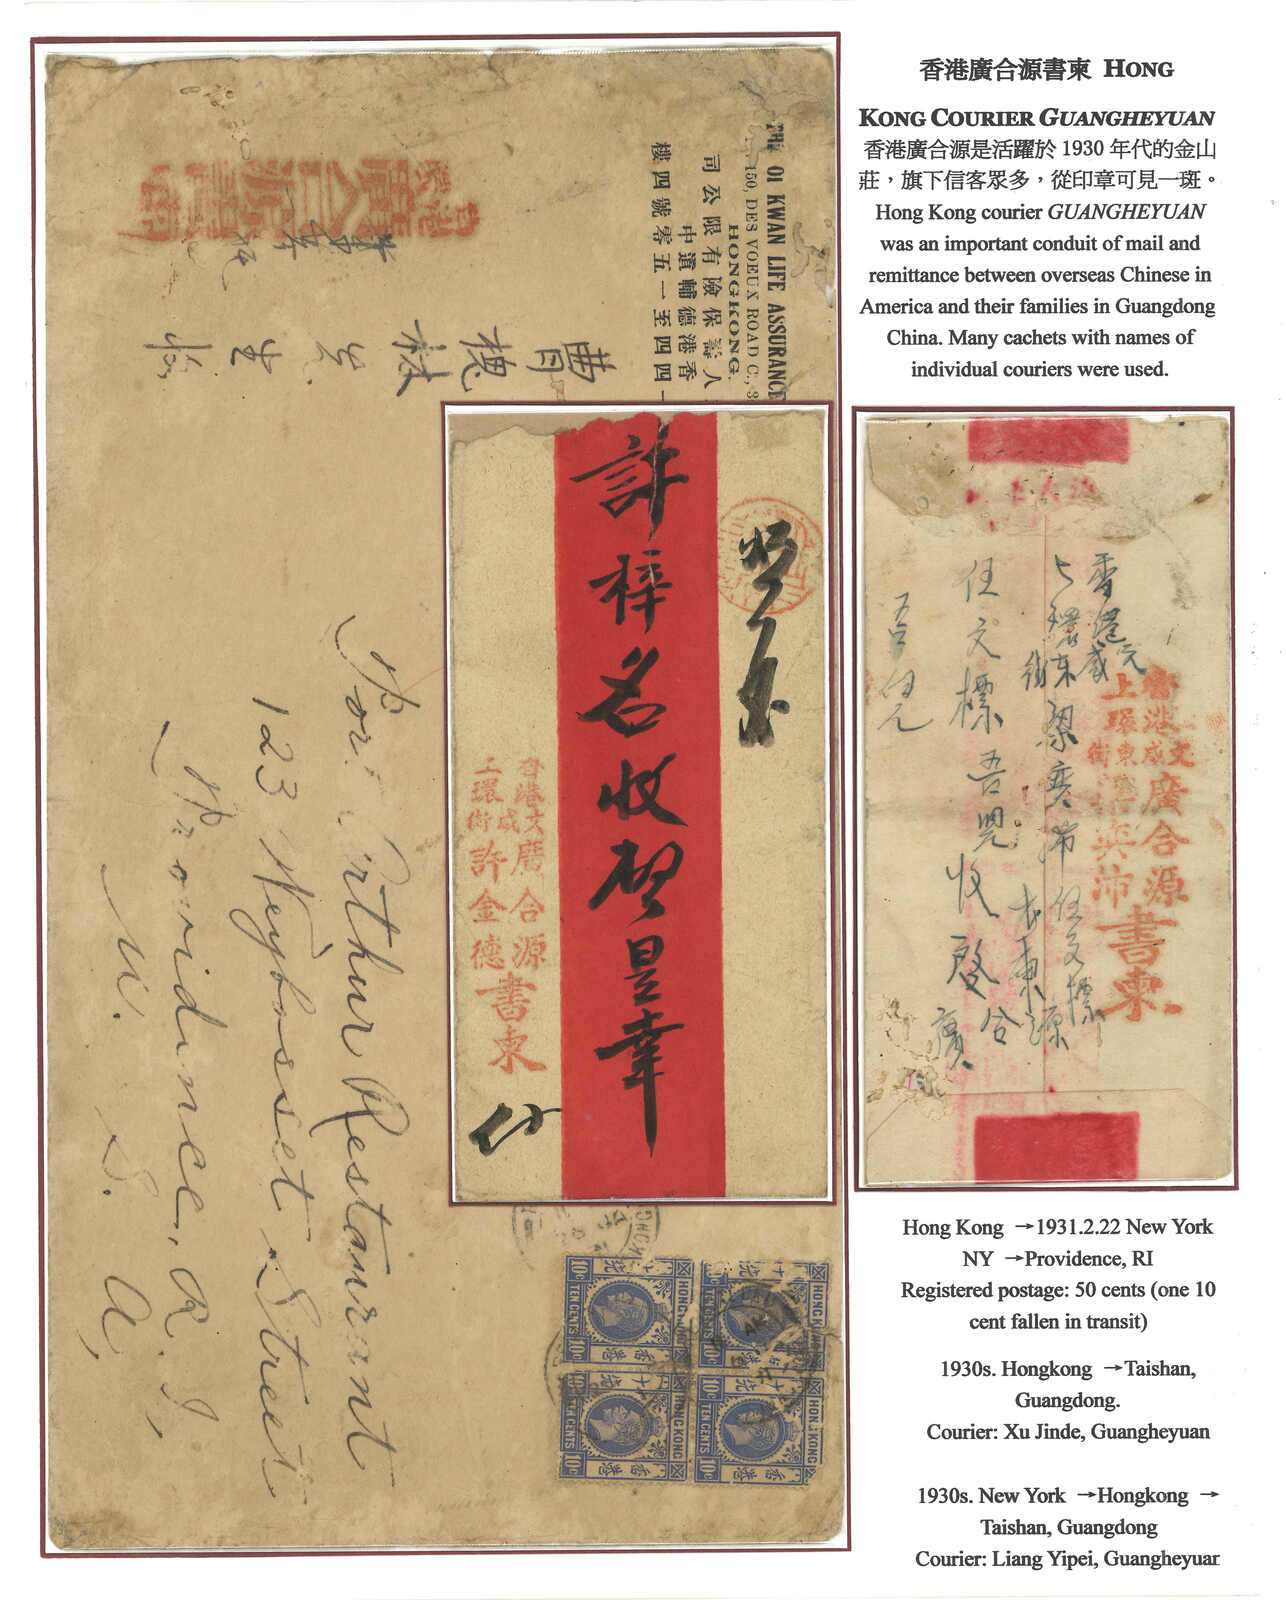 香港廣合源書柬 HONG
KONG COURIER GUANGHEYUAN
香港廣合源是活躍於 1930 年代的金山
莊，旗下信客眾多，從印章可見一斑。
Hong Kong courier GUANGHEYUAN
was an important conduit of mail and
remittance between overseas Chinese in
America and their families in Guangdong
China. Many cachets with names of
individual couriers were used.
THE OI KWAN LIFE ASSURANCE
150, DES VOEUX ROAD C., 3
HONGKONG.
司公限有險保壽人
中道輔德港香
樓四號零五一至四四一
Port Arthur Restaurant
123 Weybosset Street
Providence, R. I,
U. S. A,
許梓名收啓
香港文咸
上環東街
廣合源
許金德
書柬
香港文咸
上環東街
廣合源
書柬
任文標吾兄收啟
廣合源
HONG KONG
TEN CENTS
10c
香港
HONG KONG
TEN CENTS
10c
香港
HONG KONG
TEN CENTS
10c
香港
HONG KONG
TEN CENTS
10c
香港
Hong Kong →1931.2.22 New York
NY →Providence, RI
Registered postage: 50 cents (one 10
cent fallen in transit)
1930s. Hongkong →Taishan,
Guangdong.
Courier: Xu Jinde, Guangheyuan
1930s. New York →Hongkong →
Taishan, Guangdong
Courier: Liang Yipei, Guangheyuan